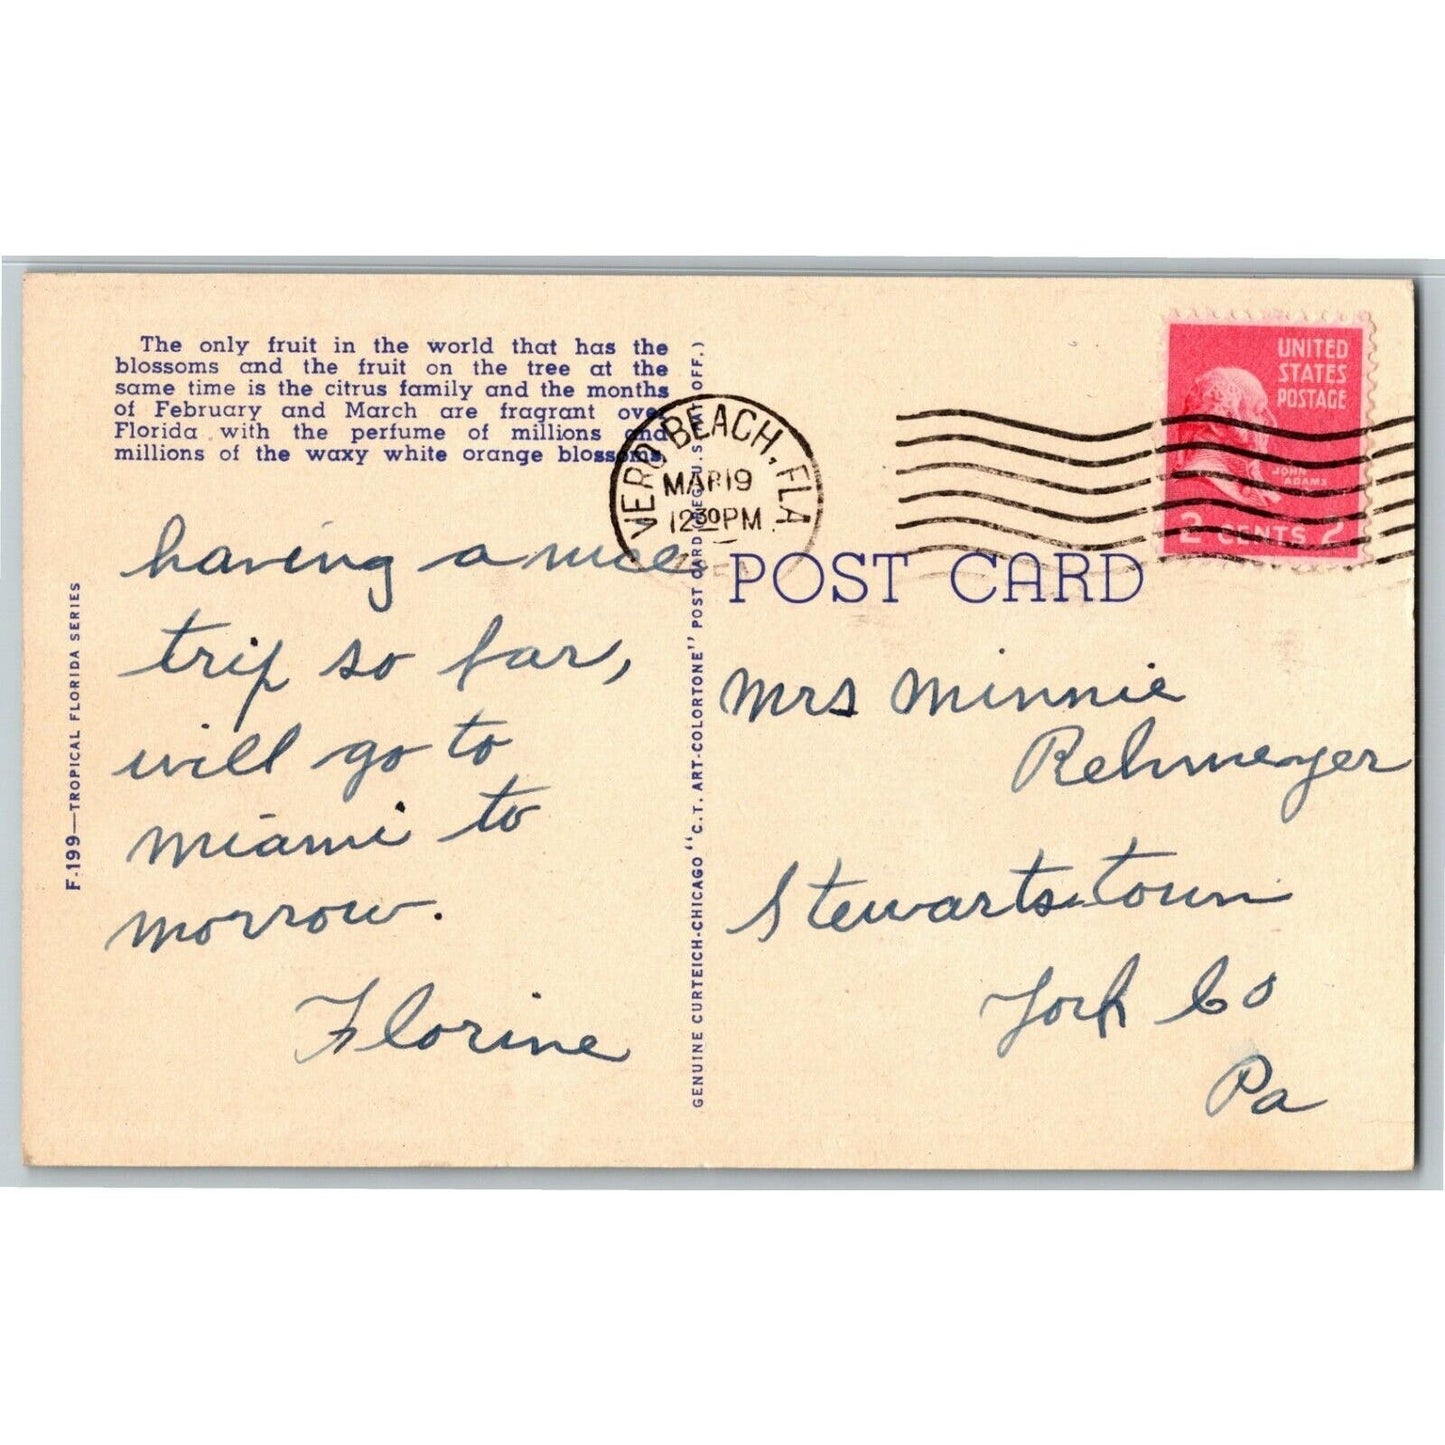 The only fruit in the world that has the
blossoms and the fruit on the tree at the
same time is the citrus family and the months
of February and March are fragrant over
Florida with the perfume of millions and
millions of the waxy white orange blossoms.
having a nice
trip so far,
will go to
miami to
morrow.
Florine
F-199—TROPICAL FLORIDA SERIES
GENUINE CURTEICH-CHICAGO "C.T. ART-COLORTONE" POST CARD (REG. U.S. PAT. OFF.)
VERO BEACH, FLA
MAR 19
12 30 PM
UNITED
STATES
POSTAGE
JOHN
ADAMS
2 CENTS 2
POST CARD
Mrs Minnie
Rehmeyer
Stewartstown
York Co
Pa